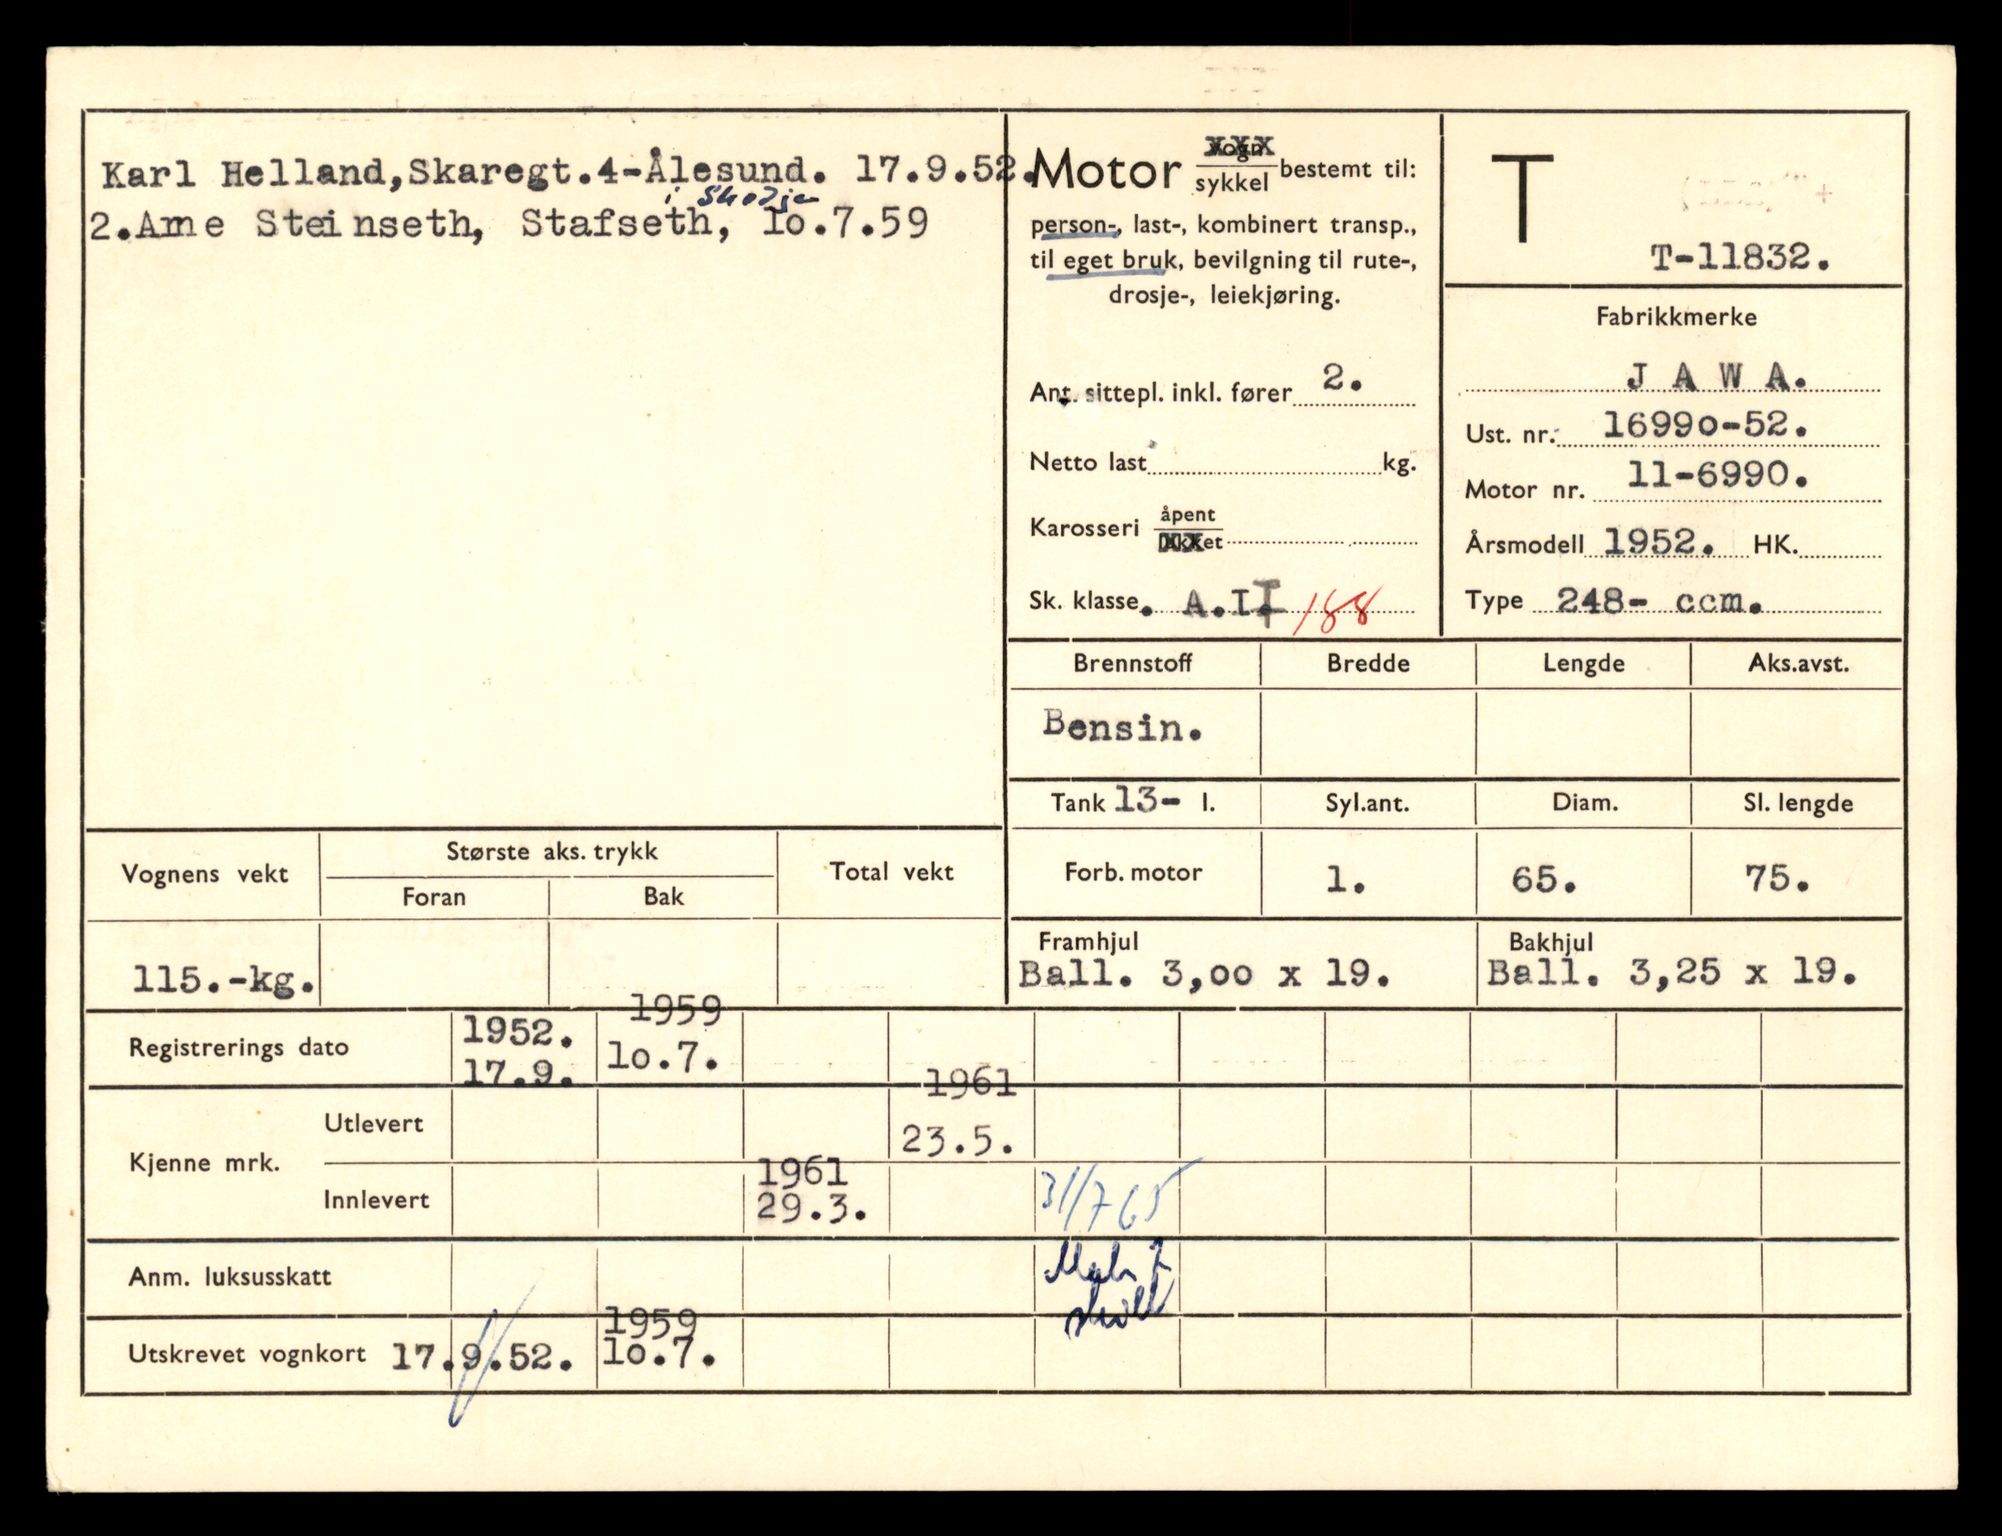 Karl Helland,Skaregt.4-Ålesund. 17.9.52.
i Skodje
2.Arne Steinseth, Stafseth, lo.7.59
Motor vogn/sykkel bestemt til:
person-, last-, kombinert transp.,
til eget bruk, bevilgning til rute-,
drosje-, leiekjøring.
Ant. sittepl. inkl. fører 2.
Netto last kg.
Karosseri åpent/lukket
Sk. klasse. A.II. 188
T
T-11832.
Fabrikkmerke
J A W A.
Ust. nr. 1699o-52.
Motor nr. 11-6990.
Årsmodell 1952. HK.
Type 248- ccm.
Brennstoff Bredde Lengde Aks.avst.
Bensin.
Tank 13- l. Syl.ant. Diam. Sl. lengde
Forb. motor 1. 65. 75.
Framhjul Bakhjul
Ball. 3,oo x 19. Ball. 3,25 x 19.
Vognens vekt Største aks. trykk Total vekt
Foran Bak
115.-kg.
Registrerings dato 1952. 17.9. 1959 lo.7.
Kjenne mrk.
Utlevert 1961 23.5.
Innlevert 1961 29.3. 31/7 65
Anm. luksusskatt
Utskrevet vognkort 17.9.52. 1959 lo.7.